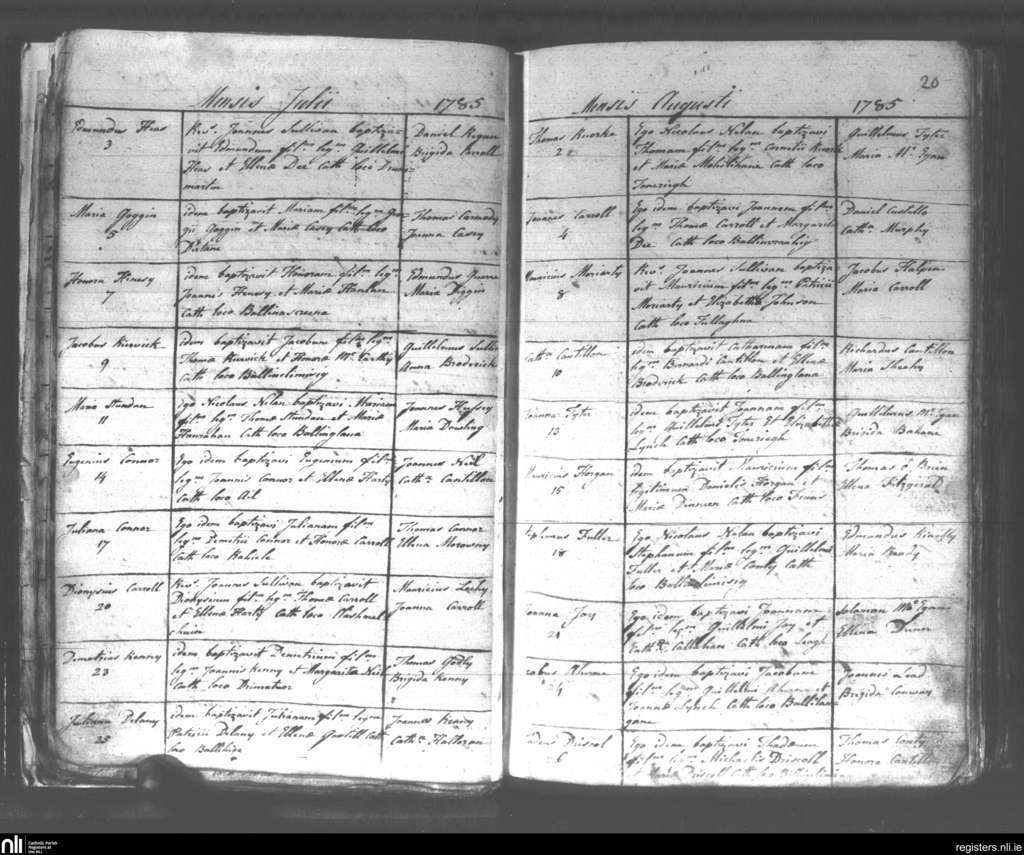 Mensis Julii 1785
Edmundus Hias
3
Revs. Joannes Sullivan baptiza-
vit Edmundum filum legum Guillelmi
Hias et Ellenæ Dee Cath loco Drum-
martin
Daniel Regan
Brigida Carroll
Maria Goggin
5
idem baptizavit Mariam filam legam
Goggin et Mariæ Casey Cath loco
Thomas Carmody
Joanna Casey
Honora Henesy
7
idem baptizavit Honoram filam legam
Joannis Henesy et Mariæ Hanlan
Cath loco Ballinascreena
Edmundus
Maria Diggin
Jacobus Kirwick
9
idem baptizavit Jacobum filum legum
Thomæ Kirwick et Honoræ McCarthy
Cath loco Ballinclemisig
Guillelmus
Anna Broderick
Maria Stundan
11
Ego Nicolaus Nolan baptizavi Mariam
filam legam Thomæ Stundan et Mariæ
Hanrahan Cath loco Ballinglana
Joannes Hussey
Maria Dowling
Eugenius Connor
14
Ego idem baptizavi Eugenium filum
legum Joannis Connor et Ellenæ Harty
Cath loco Ail
Joannes Nial
Catha Cantillon
Juliana Connor
17
Ego idem baptizavi Julianam filam
legam Dimitrii Connor et Honoræ Carroll
Cath loco
Thomas Connor
Ellena
Dionysius Carroll
20
Revs. Joannes Sullivan baptizavit
Dionysium filum legum Thomæ Carroll
et Ellenæ Harty Cath loco Clashmel
chuin
Mauricius Leahy
Joanna Carroll
Dimetrius Kenny
23
idem baptizavit Demitrium filum
legum Joannis Kenny et Margaritæ Nial
Cath loco
Thomas
Brigida Kenny
Juliana Delany
25
idem baptizavit Julianam filam legam
Patricii Delany et Ellenæ Cath
loco Ballihige
Joannes
Catha Halloran
20
Mensis Augusti 1785
Thomas Ruorke
2
Ego Nicolaus Nolan baptizavi
Thomam filum legum Cornelii Ruorke
et Mariæ Cath loco
Tomeriegh
Guillelmus Tyter
Maria McEgan
Joannes Carroll
4
Ego idem baptizavi Joannem filum
legum Thomæ Carroll et Margaritæ
Dee Cath loco
Daniel Costello
Catha Murphy
Mauricius Moriarty
8
Revs. Joannes Sullivan baptiza
vit Mauricium filum legum Patricii
Moriarty et Elizabethæ Johnson
Cath loco Tullaghna
Jacobus Halpin
Maria Carroll
Catha Cantillon
10
idem baptizavit Catharinam filam
legam Bernardi Cantillon et Ellenæ
Brodrick Cath loco Ballinglana
Richardus Cantillon
Maria Sheehy
Joanna Tyter
13
idem baptizavit Joannam filam
legam Guillelmi Tyter et Elizabethæ
Lynch Cath loco Tomeriegh
Guillelmus McEgan
Brigida Bahane
Mauricius Horgan
15
idem baptizavit Mauricium filum
legitimum Danielis Horgan et
Mariæ Cath loco
Thomas O Brien
Ellena Fitzgerald
Stephanus Fuller
18
Ego Nicolaus Nolan baptizavi
Stephanum filum legum Guillelmi
Fuller et Mariæ Conty Cath
loco
Edmundus
Maria
Joanna Joy
21
Ego idem baptizavi Joannam
filam legam Guillelmi Joy et
Cathæ Callahan Cath loco
Soloman McEgan
Ellena Dunn
Jacobus
24
Ego idem baptizavi Jacobum
filum legum Guillelmi et
Joannæ Lynch Cath loco
gane
Joannes Lead
Brigida Conway
Thadeus Driscol
26
Ego idem baptizavi Thadæum
filum legum Michaelis Driscoll
et Mariæ Driscoll Cath loco
Thomas Conty
Honora Cantillon
nli
Catholic Parish
Registers at
the NLI
registers.nli.ie